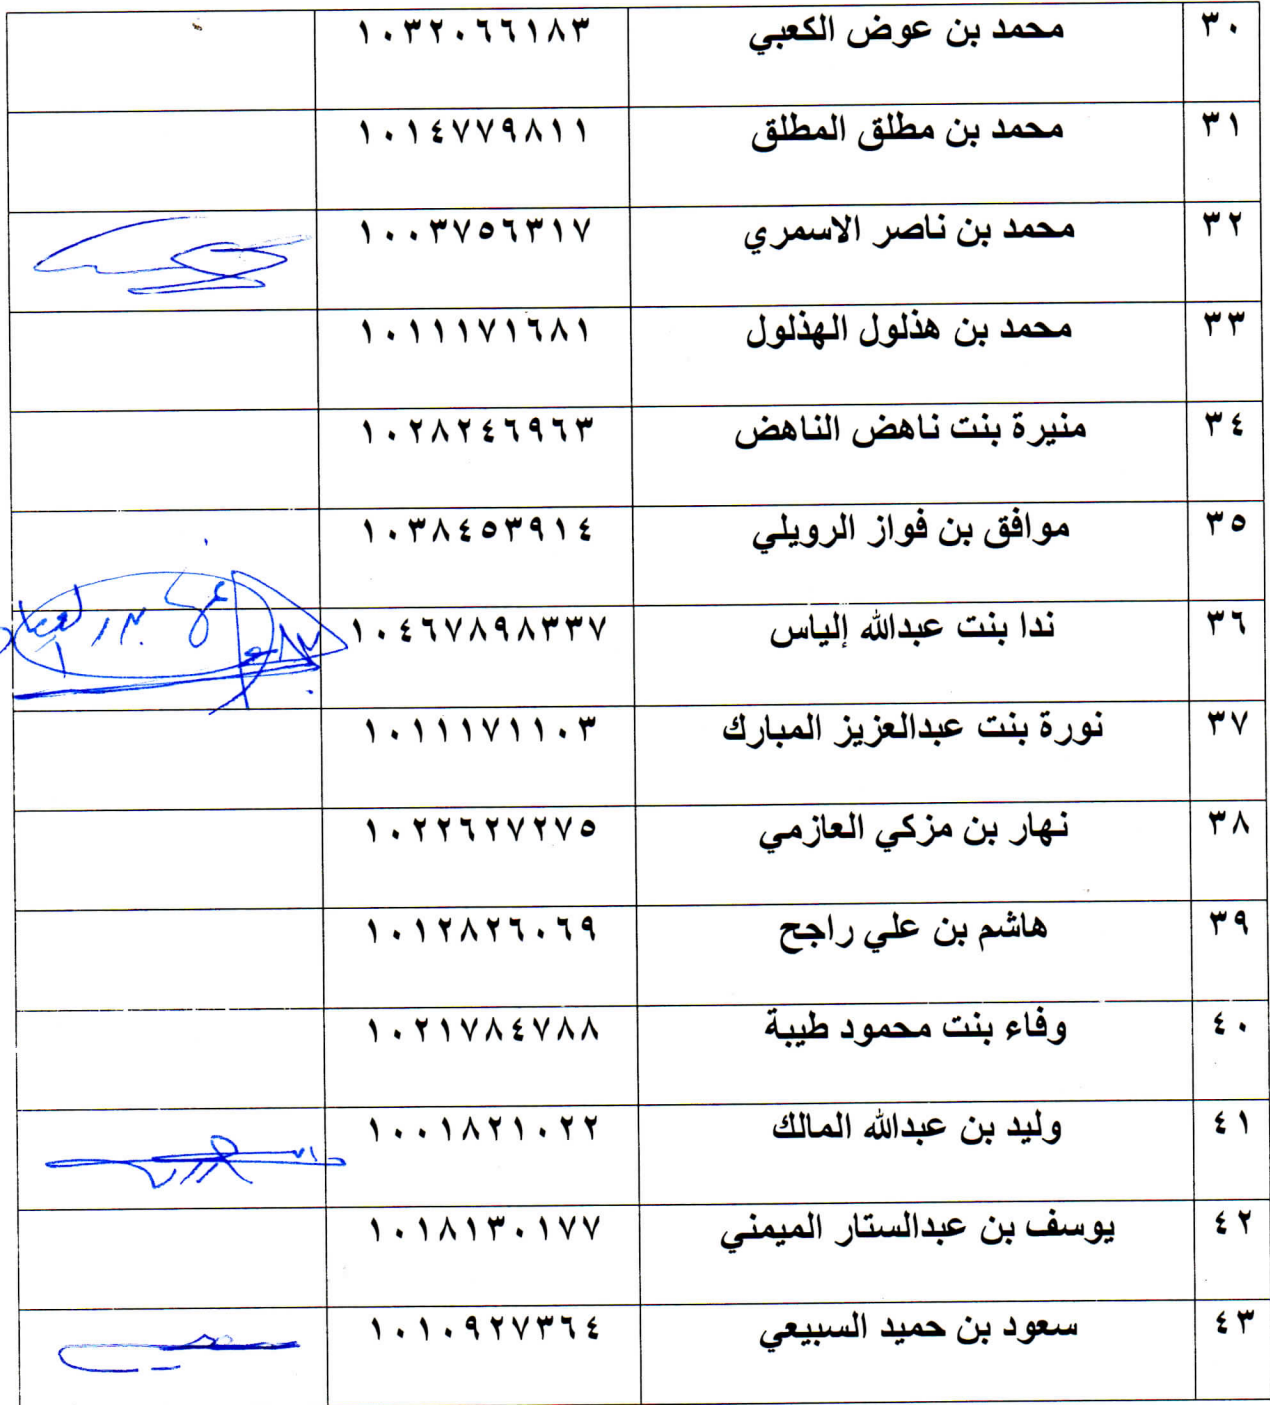 ٣٠ محمد بن عوض الكعبي ١٠٣٢٠٦٦١٨٣
٣١ محمد بن مطلق المطلق ١٠١٤٧٧٩٨١١
٣٢ محمد بن ناصر الاسمري ١٠٠٣٧٥٦٣١٧
٣٣ محمد بن هذلول الهذلول ١٠١١١٧١٦٨١
٣٤ منيرة بنت ناهض الناهض ١٠٢٨٢٤٦٩٦٣
٣٥ موافق بن فواز الرويلي ١٠٣٨٤٥٣٩١٤
٣٦ ندا بنت عبدالله إلياس ١٠٤٦٧٨٩٨٣٣٧
٣٧ نورة بنت عبدالعزيز المبارك ١٠١١١٧١١٠٣
٣٨ نهار بن مزكي العازمي ١٠٢٢٦٢٧٢٧٥
٣٩ هاشم بن علي راجح ١٠١٢٨٢٦٠٦٩
٤٠ وفاء بنت محمود طيبة ١٠٢١٧٨٤٧٨٨
٤١ وليد بن عبدالله المالك ١٠٠١٨٢١٠٢٢
٤٢ يوسف بن عبدالستار الميمني ١٠١٨١٣٠١٧٧
٤٣ سعود بن حميد السبيعي ١٠١٠٩٢٧٣٦٤